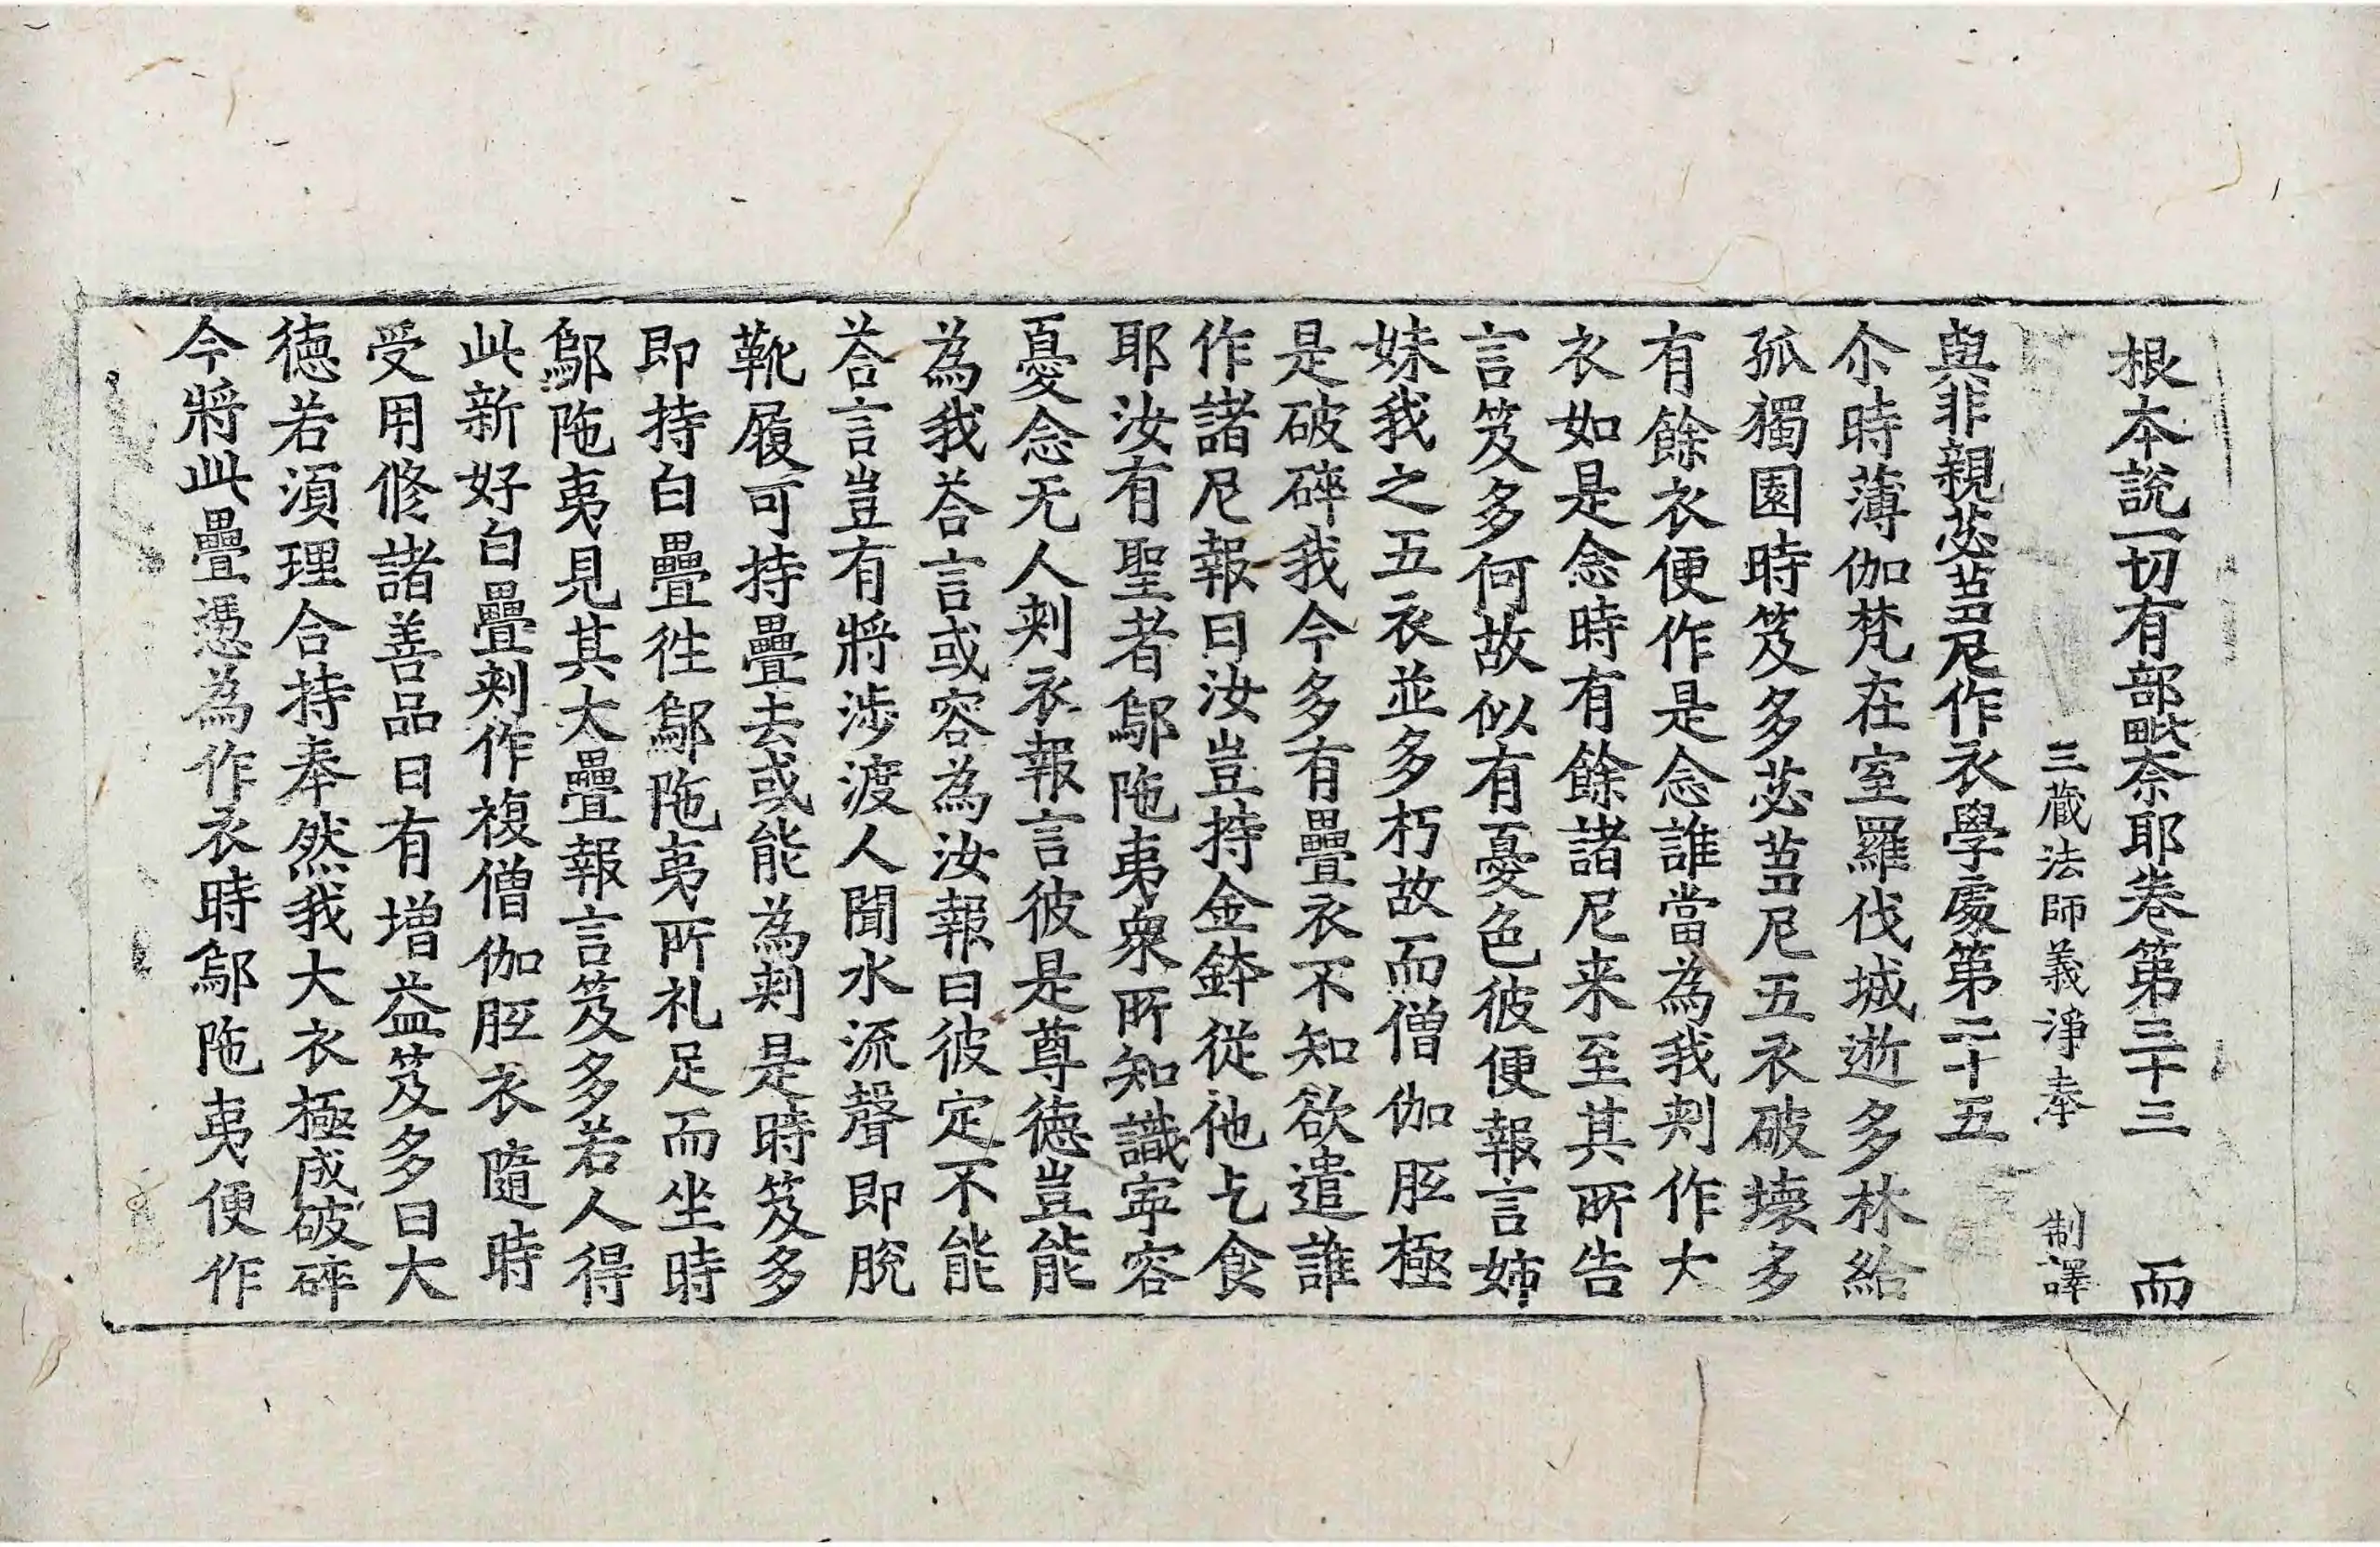 根本說一切有部毗奈耶卷第三十三 而
三藏法師義淨奉 制譯
與非親苾芻尼作衣學處第二十五
尒時薄伽梵在室羅伐城逝多林給
孤獨園時笈多苾芻尼五衣破壞多
有餘衣便作是念誰當為我刾作大
衣如是念時有餘諸尼来至其所告
言笈多何故似有憂色彼便報言姉
妹我之五衣並多朽故而僧伽胝極
是破碎我今多有疊衣不知欲遣誰
作諸尼報曰汝豈持金鉢從他乞食
耶汝有聖者鄔陁夷衆所知識寧容
憂念无人刾衣報言彼是尊德豈能
為我荅言或容為汝報曰彼定不能
荅言豈有將涉渡人聞水流聲即脫
靴履可持疊去或能為刾是時笈多
即持白疊徃鄔陁夷所礼足而坐時
鄔陁夷見其大疊報言笈多若人得
此新好白疊刾作複僧伽胝衣隨時
受用修諸善品日有增益笈多曰大
德若湏理合持奉然我大衣極成破碎
今將此疊憑為作衣時鄔陁夷便作